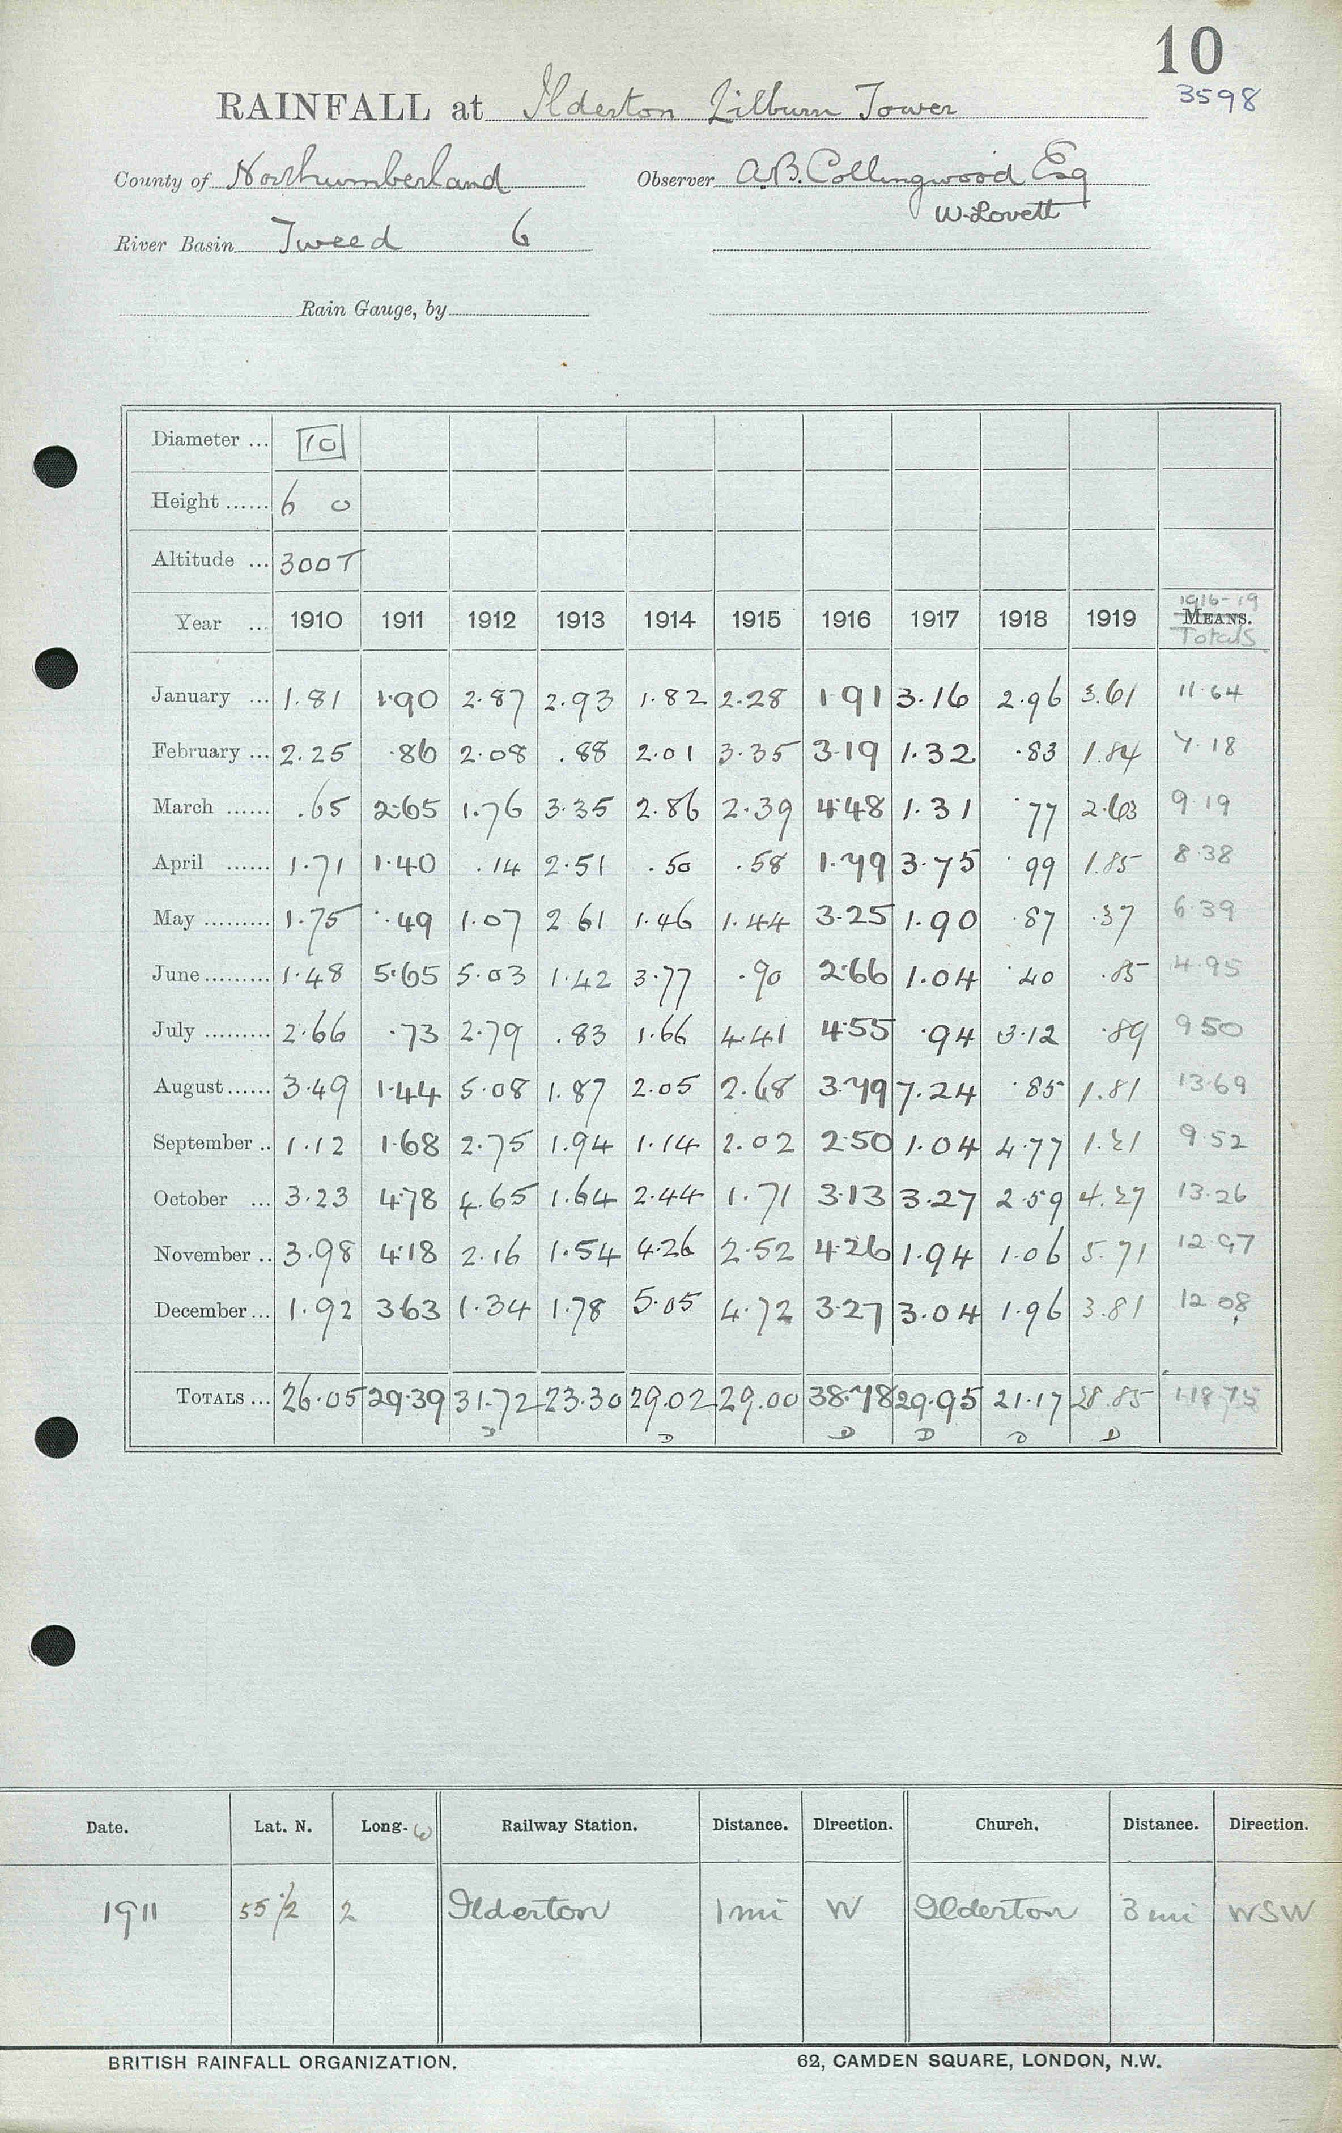 10
3598
RAINFALL at Ilderton Lilburn Tower
County of Northumberland Observer A.B. Collingwood Esq
W. Lovett
River Basin Tweed 6
Rain Gauge, by
Diameter ... 10
Height ...... 6 0
Altitude ... 300T
1916-19
Year .. 1910 1911 1912 1913 1914 1915 1916 1917 1918 1919 MEANS.
Totals
January ... 1.81 1.90 2.87 2.93 1.82 2.28 1 91 3.16 2.96 3.61 11.64
February ... 2.25 .86 2.08 .88 2.01 3.35 3.19 1.32 .83 1.84 7.18
March ...... .65 2.65 1.76 3.35 2.86 2.39 4.48 1.31 .77 2.63 9 19
April ...... 1.71 1.40 .14 2.51 .50 .58 1.79 3.75 .99 1.85 8.38
May ......... 1.75 .49 1.07 2 61 1.46 1.44 3.25 1.90 .87 .37 6.39
June ......... 1.48 5.65 5.03 1.42 3.77 .90 2.66 1.04 .40 .85 4.95
July ......... 2.66 .73 2.79 .83 1.66 4.41 4.55 .94 3.12 .89 9 50
August ...... 3.49 1.44 5.08 1.87 2.05 2.68 3.79 7.24 .85 1.81 13.69
September .. 1.12 1.68 2.75 1.94 1.14 2.02 2.50 1.04 4.77 1.21 9.52
October ... 3.23 4.78 4.65 1.64 2.44 1.71 3.13 3.27 2.59 4.27 13.26
November .. 3.98 4.18 2.16 1.54 4.26 2.52 4.26 1.94 1.06 5.71 12.97
December ... 1.92 3.63 1.34 1.78 5.05 4.72 3.27 3.04 1.96 3.81 12 08
TOTALS ... 26.05 29.39 31.72 23.30 29.02 29.00 38.78 29.95 21.17 28.85 118.75
D D D D D D
Date. Lat. N. Long. W Railway Station. Distance. Direction. Church. Distance. Direction.
1911 55 1/2 2 Ilderton 1 mi W Ilderton 3 mi WSW
BRITISH RAINFALL ORGANIZATION. 62, CAMDEN SQUARE, LONDON, N.W.